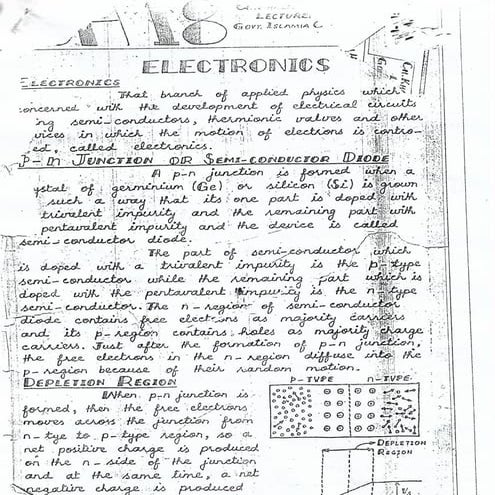 18
LECTURE
GOVT. ISLAMIA C
ELECTRONICS
ELECTRONICS
That branch of applied physics which
oncerned with the development of electrical circuits
ing semi-conductors, thermionic valves and other
vices in which the motion of electrons is contro-
ed, called electronics.
P-N JUNCTION OR SEMI-CONDUCTOR DIODE
A p-n junction is formed when a
ystal of germinium (Ge) or silicon (Si) is grown
such a way that its one part is doped with
trivalent impurity and the remaining part with
pentavalent impurity and the device is called
semi-conductor diode.
The part of semi-conductor which
is doped with a trivalent impurity is the p-type
semi-conductor while the remaining part which is
doped with the pentavalent impurity is the n-type
semi-conductor. The n-region of semi-conductor
diode contains free electrons as majority carriers
and its p-region contains holes as majority charge
carriers. Just after the formation of p-n junction,
the free electrons in the n-region diffuse into the
p-region because of their random motion.
DEPLETION REGION
When p-n junction is
formed, then the free electrons
moves across the junction from
n-tye to p-type region, so a
net positive charge is produced
on the n-side of the junction
and at the same time, a net
negative charge is produced
P-TYPE n-TYPE
DEPLETION
REGION